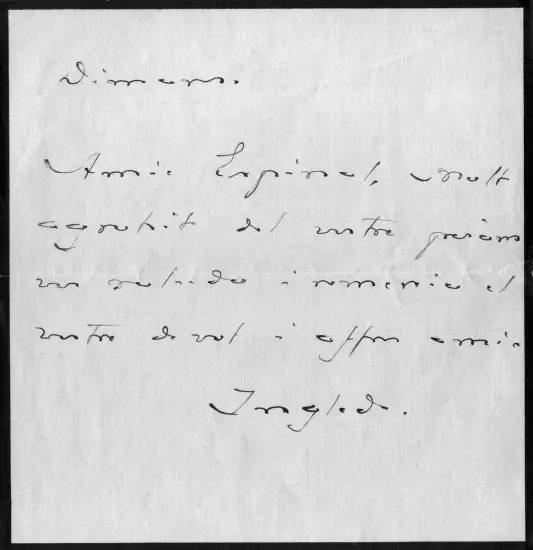 Dimars.
Amic Espinal, molt
agrahit del vostre
vos saluda i remercia el
vostre devot i affm amic
Inglada.